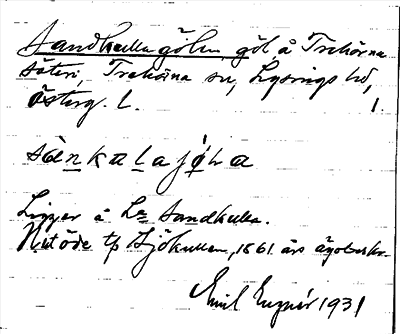 Sandkullagölen, göl å Trehörna
säteri, Trehörna sn, Lysings hd,
Österg. l. 1.
sànkalajö́la
Ligger å La Sandkulla.
Utöde t Sjökullen, 1861 års
Emil 1931